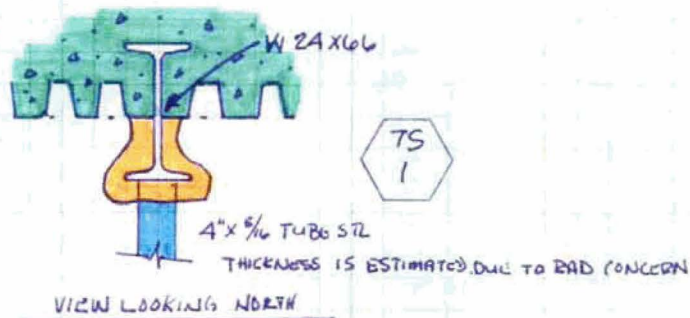 W 24X66
TS
1
4" x 5/16 TUBE STL
THICKNESS IS ESTIMATED. DUE TO RAD CONCERN
VIEW LOOKING NORTH